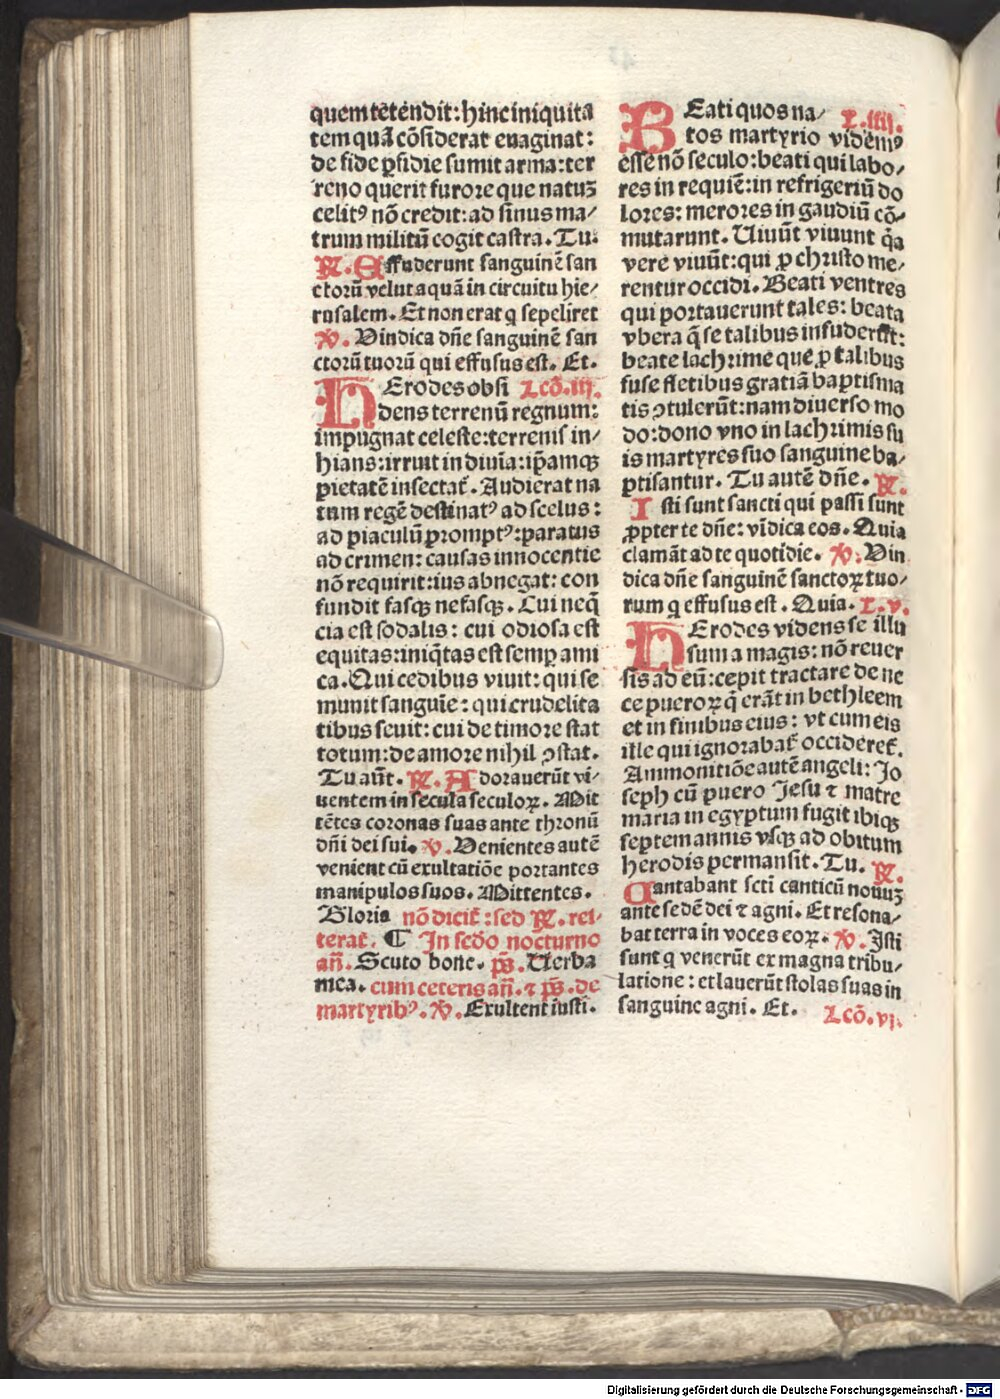 quem tetendit: hinc iniquita
tem quā cōsiderat euaginat:
de fide ꝑfidie sumit arma: ter
reno querit furore que natuꝫ
celitꝰ nō credit: ad sinus ma⸗
trum militū cogit castra. Tu.
℟. Effuderunt sanguinē san
ctorū velut aquā in circuitu hie⸗
rusalem. Et non erat q sepeliret
℣. Vindica dn̄e sanguinē san
ctorū tuorū qui effusus est. Et.
HErodes obsi Lcō. iij.
dens terrenū regnum:
impugnat celeste: terrenis in⸗
hians: irruit in diuīa: ip̄amqꝫ
pietatē insectat̄. Audierat na
tum regē destinatꝰ ad scelus:
ad piaculū promptꝰ: paratus
ad crimen: causas innocentie
nō requirit: ius abnegat: con
fundit fasqꝫ nefasqꝫ. Cui neq̄
cia est sodalis: cui odiosa est
equitas: iniq̄tas est semꝑ ami
ca. Qui cedibus viuit: qui se
munit sanguīe: qui crudelita
tibus seuit: cui de timore stat
totum: de amore nihil ꝯstat.
Tu aūt. ℟. Adorauerūt vi⸗
uentem in secula seculoꝝ. Mit
tētes coronas suas ante thronū
dn̄i dei sui. ℣. Venientes autē
venient cū exultatiōe portantes
manipulos suos. Mittentes.
Gloria nō dicit̄: sed ℟. rei⸗
terat̄. ¶ In sedo nocturno
an̄. Scuto bone. ps̄. Verba
mea. cum ceteris an̄. ⁊ ps̄. de
martyribꝰ. ℣. Exultent iusti.
BEati quos na⸗ L. iiij.
tos martyrio vidēmꝰ
esse nō seculo: beati qui labo⸗
res in requiē: in refrigeriū do
lores: merores in gaudiū cō⸗
mutarunt. Uiuūt viuunt q̄a
vere viuūt: qui ꝓ christo me⸗
rentur occidi. Beati ventres
qui portauerunt tales: beata
vbera q̄ se talibus infuderūt:
beate lachrime que ꝓ talibus
fuse fletibus gratiā baptisma
tis ꝯtulerūt: nam diuerso mo
do: dono vno in lachrimis su
is martyres suo sanguine ba⸗
ptisantur. Tu autē dn̄e. ℟.
Isti sunt sancti qui passi sunt
ꝓpter te dn̄e: vīdica eos. Quia
clamāt ad te quotidie. ℣. Vin
dica dn̄e sanguinē sanctoꝝ tuo⸗
rum q effusus est. Quia. L. v.
HErodes videns se illu
sum a magis: nō reuer
sis ad eū: cepit tractare de ne
ce pueroꝝ q̄ erāt in bethleem
et in finibus eius: vt cum eis
ille qui ignorabat̄ occideret̄.
Ammonitiōe autē angeli: Jo
seph cū puero Jesu ⁊ matre
maria in egyptum fugit ibiqꝫ
septem annis vsqꝫ ad obitum
herodis permansit. Tu. ℟.
Cantabant scti canticū nouuꝫ
ante sedē dei ⁊ agni. Et resona⸗
bat terra in voces eoꝝ. ℣. Isti
sunt q venerūt ex magna tribu⸗
latione: et lauerūt stolas suas in
sanguine agni. Et. Lcō. vj.
Digitalisierung gefördert durch die Deutsche Forschungsgemeinschaft - DFG